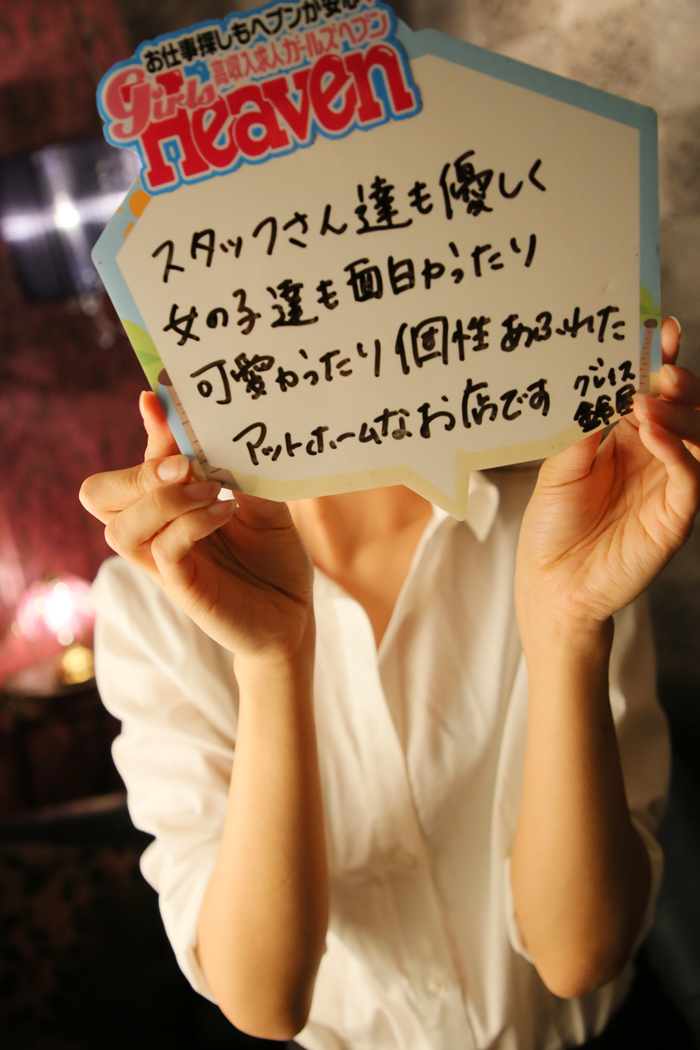 お仕事探しもヘブンが安心
高収入求人ガールズヘブン
Girl's
Heaven
スタッフさん達も優しく
女の子達も面白かったり
可愛かったり個性あふれた
アットホームなお店です
グレイス
鈴居